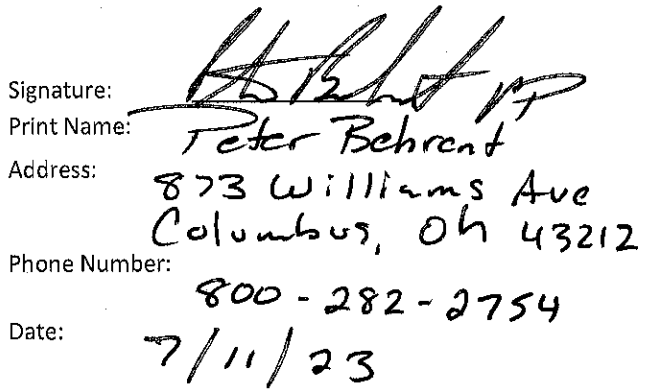 Signature: Peter Behrent VP
Print Name: Peter Behrent
Address: 873 Williams Ave
Columbus, Oh 43212
Phone Number:
800-282-2754
Date: 7/11/23